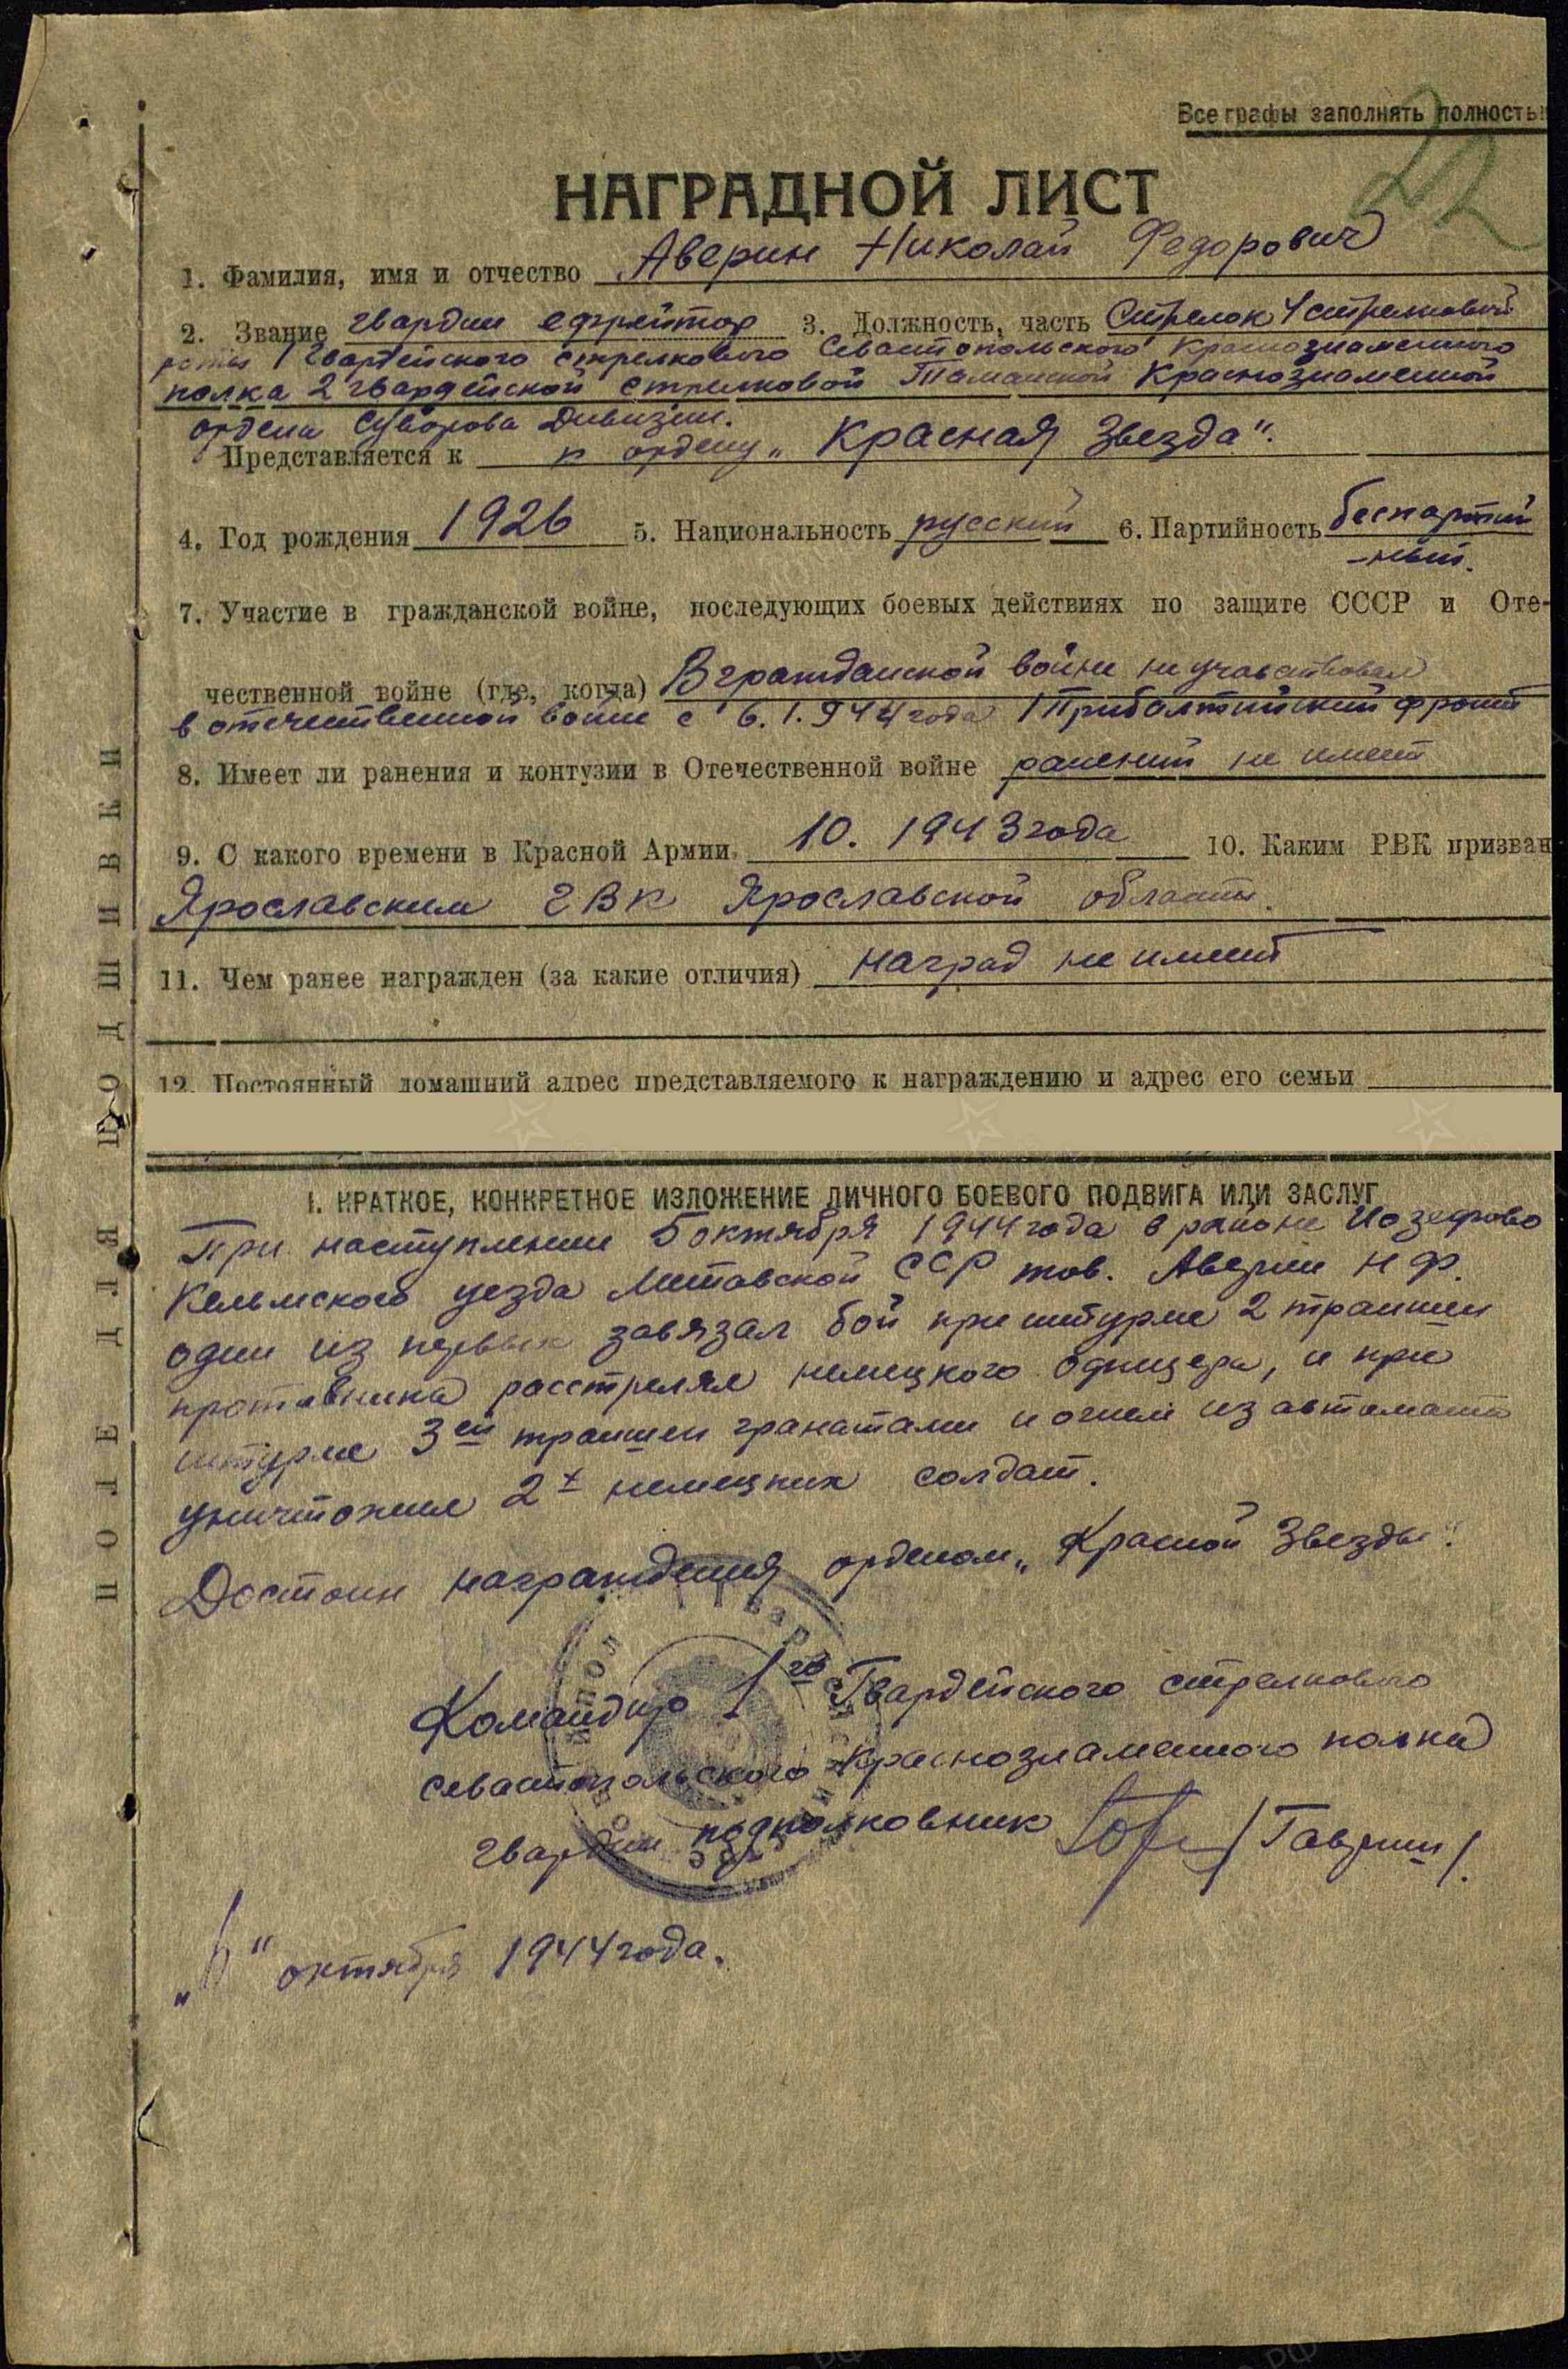 Все графы заполнять полностью
22
НАГРАДНОЙ ЛИСТ
1. Фамилия, имя и отчество Аверин Николай Федорович
2. Звание гвардии ефрейтор 3. Должность, часть Стрелок 4 стрелковой
роты 1 гвардейского стрелкового Севастопольского Краснознаменного
полка 2 гвардейской стрелковой Таманской Краснознаменной
ордена Суворова Дивизии.
Представляется к к ордену „Красная Звезда".
4. Год рождения 1926 5. Национальность русский 6. Партийность беспартий
-ный.
7. Участие в гражданской войне, последующих боевых действиях по защите СССР и Оте-
чественной войне (где, когда) В гражданской войне не участвовал
в отечественной войне с 6.1.944 года 1 Прибалтийский фронт
8. Имеет ли ранения и контузии в Отечественной войне ранений не имеет
9. С какого времени в Красной Армии 10. 1943 года 10. Каким РВК призван
Ярославским ГВК Ярославской области.
11. Чем ранее награжден (за какие отличия) наград не имеет
12. Постоянный домашний адрес представляемого к награждению и адрес его семьи
I. КРАТКОЕ, КОНКРЕТНОЕ ИЗЛОЖЕНИЕ ЛИЧНОГО БОЕВОГО ПОДВИГА ИЛИ ЗАСЛУГ
При наступлении 5 октября 1944 года в районе Иозефово
Кельмского уезда Литовской ССР тов. Аверин Н Ф.
один из первых завязал бой при штурме 2 траншеи
противника расстрелял немецкого офицера, и при
штурме 3ей траншеи гранатами и огнем из автомата
уничтожил 2х немецких солдат.
Достоин награждения орденом „Красной Звезды".
Командир 1го Гвардейского стрелкового
Севастопольского Краснознаменного полка
гвардии подполковник /Гаврин/.
„6" октября 1944 года.
ПОЛЕ ДЛЯ ПОДШИВКИ